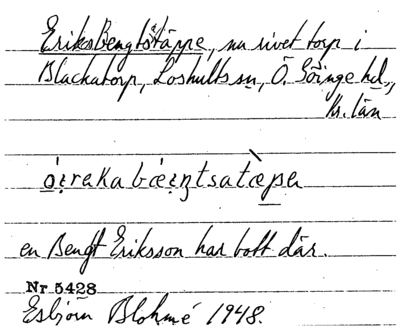 EriksBengtstäppe, nu rivet torp i
Blackatorp, Loshults sn, Ö. Göinge hd.,
Kr. län
en Bengt Eriksson har bott där.
Nr 5428
Esbjörn Blohmé 1948.